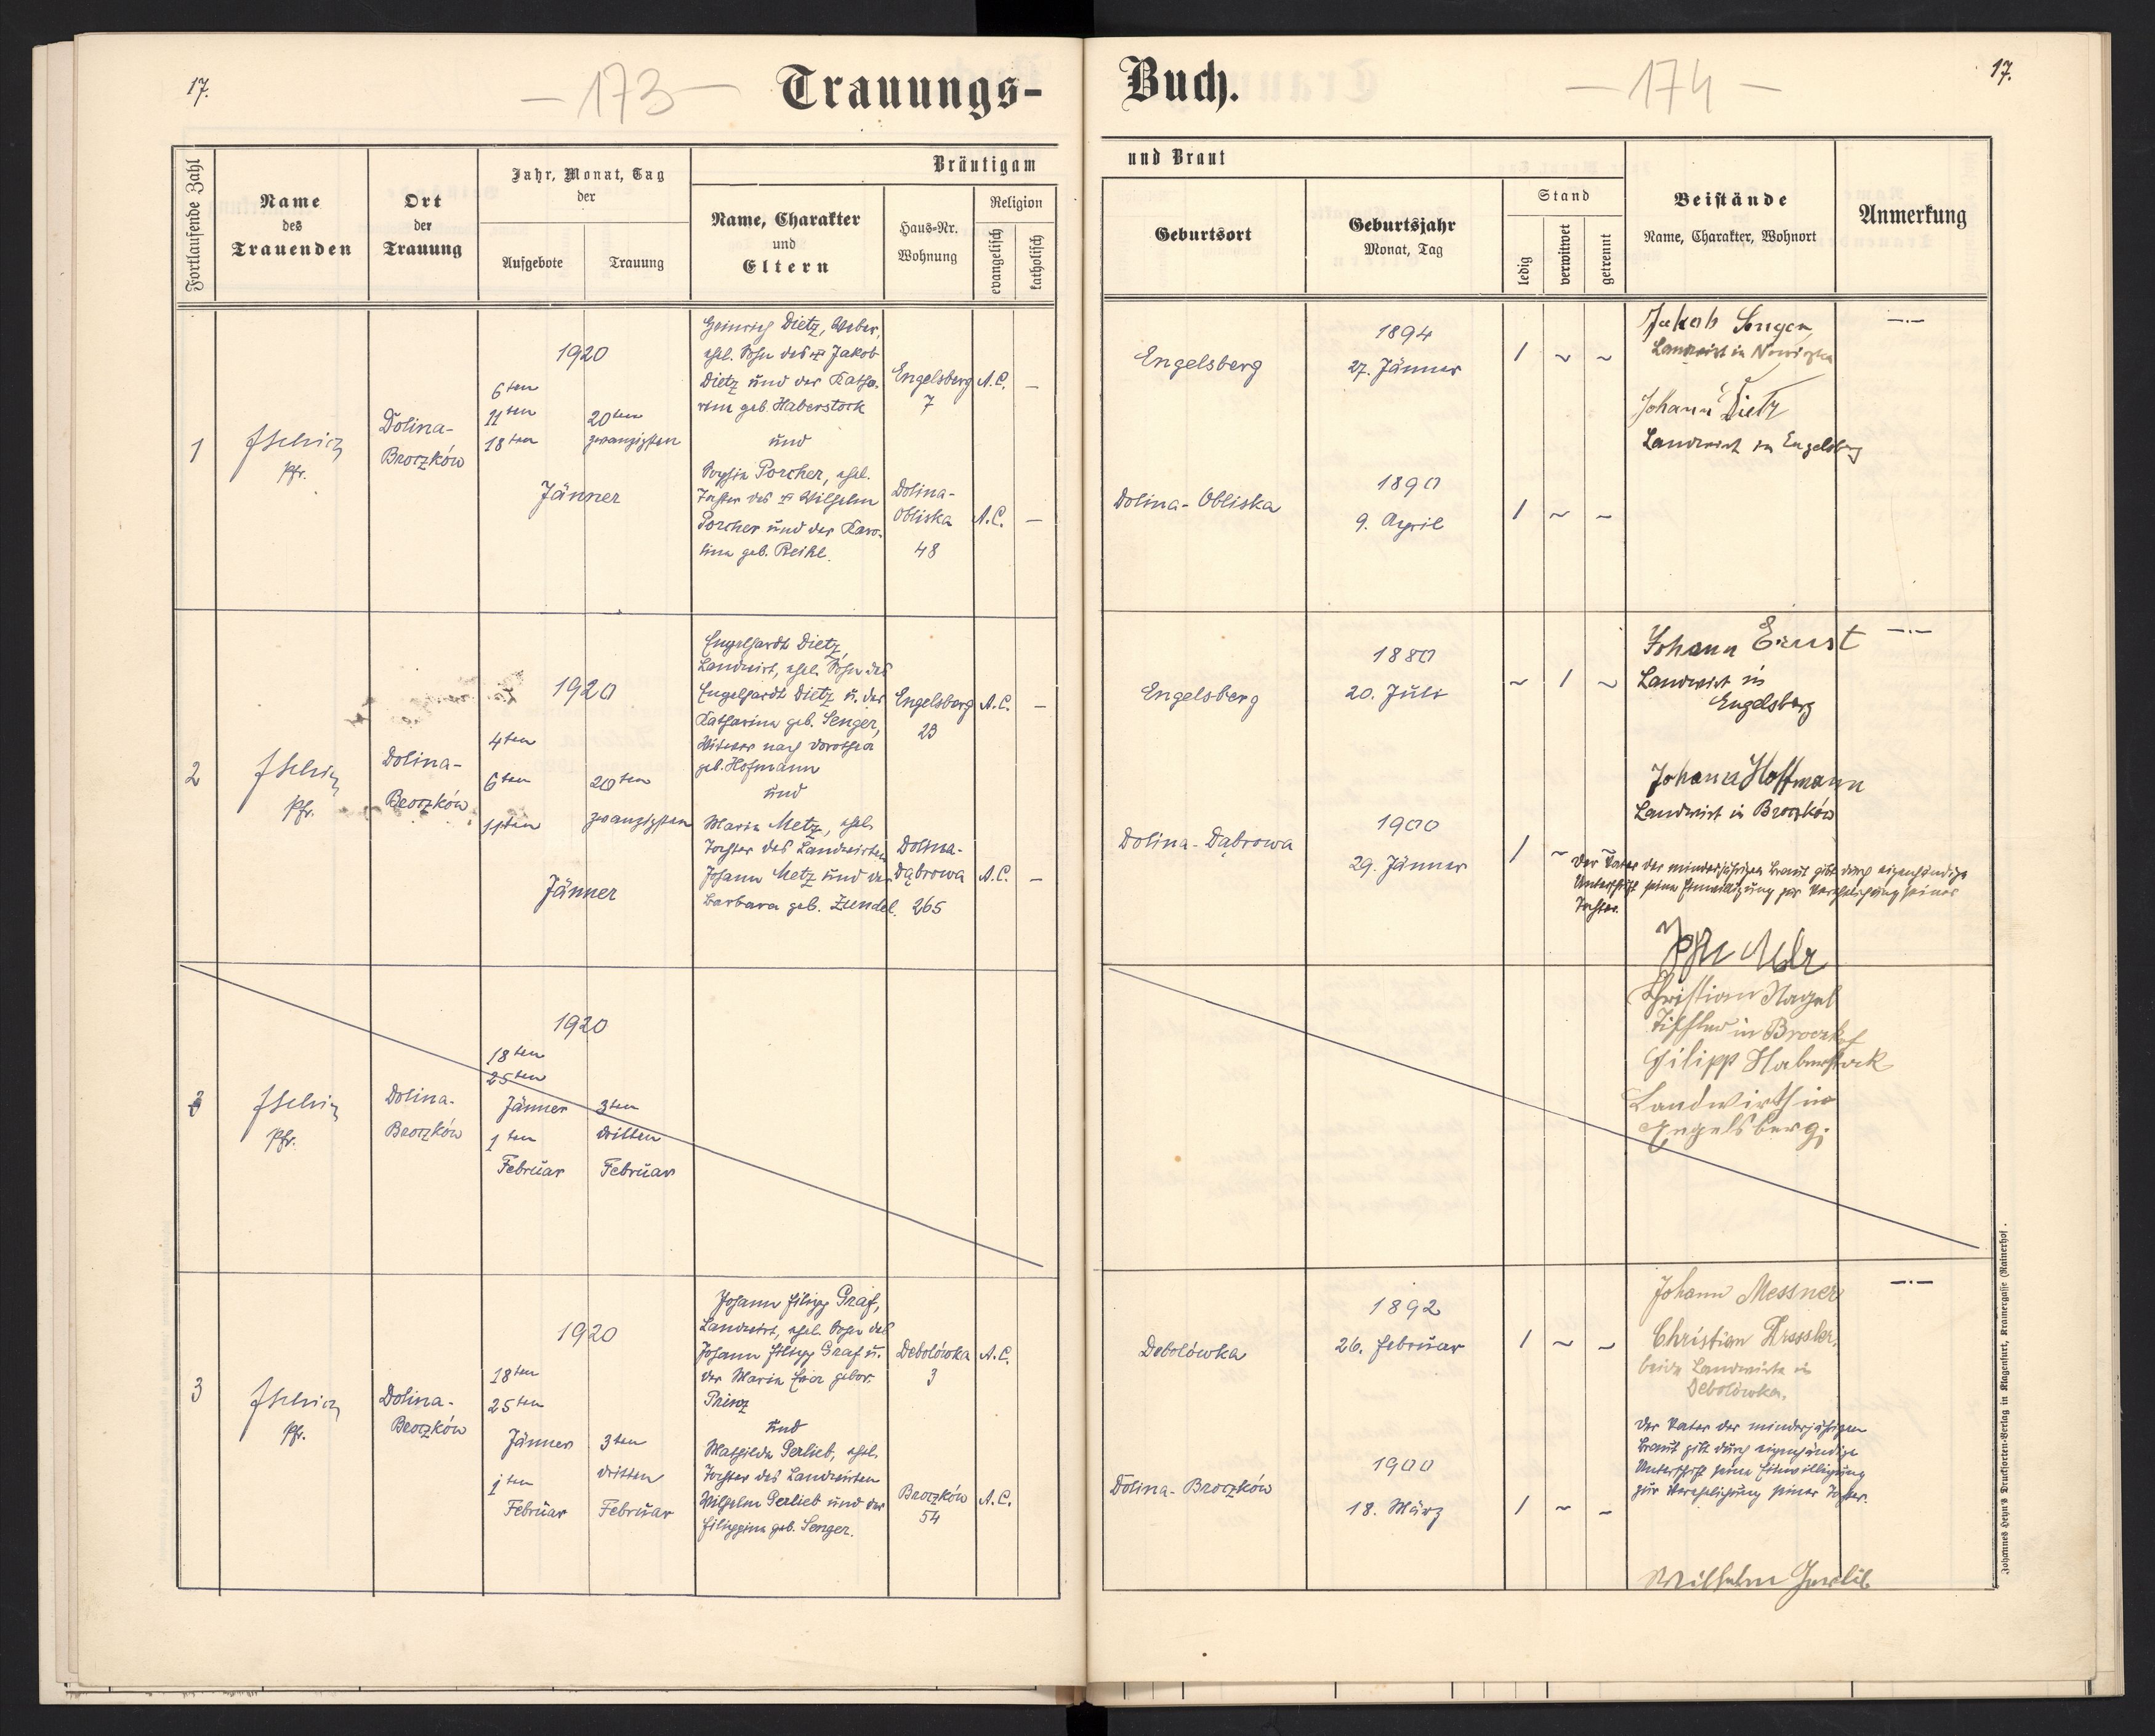 17.
— 173 —
Trauungs-
Fortlaufende Zahl
Name
des
Trauenden
Ort
der
Trauung
Jahr, Monat, Tag
der
Aufgebote
Trauung
Bräutigam
Name, Charakter
und
Eltern
Haus-Nr.
Wohnung
Religion
evangelisch
katholisch
1
Pfr.
Dolina-
Broczków
1920
6ten
11ten
18ten
20ten
zwanzigsten
Jänner
Heinrich Dietz, Weber,
ehel. Sohn des Jakob
Dietz und der Katha-
rina geb. Haberstock
und
Sophia Porcher, ehel.
Tochter des Wilhelm
Porcher und der Karo-
lina geb. Reihl.
Engelsberg
7
A.C.
—
Dolina-
Obliska
48
A.C.
—
2
Pfr.
Dolina-
Broczków
1920
4ten
6ten
11ten
20ten
zwanzigsten
Jänner
Engelhardt Dietz,
Landwirt, ehel. Sohn des
Engelhardt Dietz u. der
Katharina geb. Senger,
Witwer nach Dorothea
geb. Hofmann
und
Maria Metz, ehel.
Tochter des Landwirten
Johann Metz und der
Barbara geb. Zundel.
Engelsberg
23
A.C.
—
Dolina-
Dąbrowa
265
A.C.
—
3
Pfr.
Dolina-
Broczków
1920
18ten
25ten
Jänner
1ten
Februar
3ten
dritten
Februar
3
Pfr.
Dolina-
Broczków
1920
18ten
25ten
Jänner
1ten
Februar
3ten
dritten
Februar
Johann Filipp Graf,
Landwirt, ehel. Sohn des
Johann Filipp Graf u.
der Maria Eva gebor.
Prinz
und
Mathilda Gerlieb, ehel.
Tochter des Landwirten
Wilhelm Gerlieb und der
Filippina geb. Senger.
Debolówka
3
A.C.
Broczków
54
A.C.
Buch.
— 174 —
17.
und Braut
Geburtsort
Geburtsjahr
Monat, Tag
Stand
ledig
verwitwet
getrennt
Beistände
Name, Charakter, Wohnort
Anmerkung
Engelsberg
1894
27. Jänner
1 ~ ~
Jakob Senger,
Landwirt in
Johann Dietz
Landwirt in Engelsberg
—.—
Dolina-Obliska
1890
9. April
1 ~ ~
Engelsberg
1880
20. Juli
~ 1 ~
Johann Ernst
Landwirt in
Engelsberg
Johann Hoffmann
Landwirt in Broczków
—.—
Dolina-Dąbrowa
1900
29. Jänner
1 ~
Der Vater der minderjährigen Braut gibt durch eigenhändige
Unterschrift seine Einwilligung zur Verehelichung seiner
Tochter.
Christian Nagel
Tischler in
Filipp Haberstock
Landwirth in
Engelsberg.
Debolówka
1892
26. Februar
1 ~ ~
Johann Messner
Christian Dressler,
beide Landwirte in
Debolówka.
—.—
Dolina-Broczków
1900
18. März
1 ~ ~
Der Vater der minderjährigen
Braut gibt durch eigenhändige
Unterschrift seine Einwilligung
zur Verehelichung seiner Tochter.
Wilhelm Gerlib
Johannes Heyn's Drucksorten-Verlag in Klagenfurt, Kramergasse (Rainerhof).